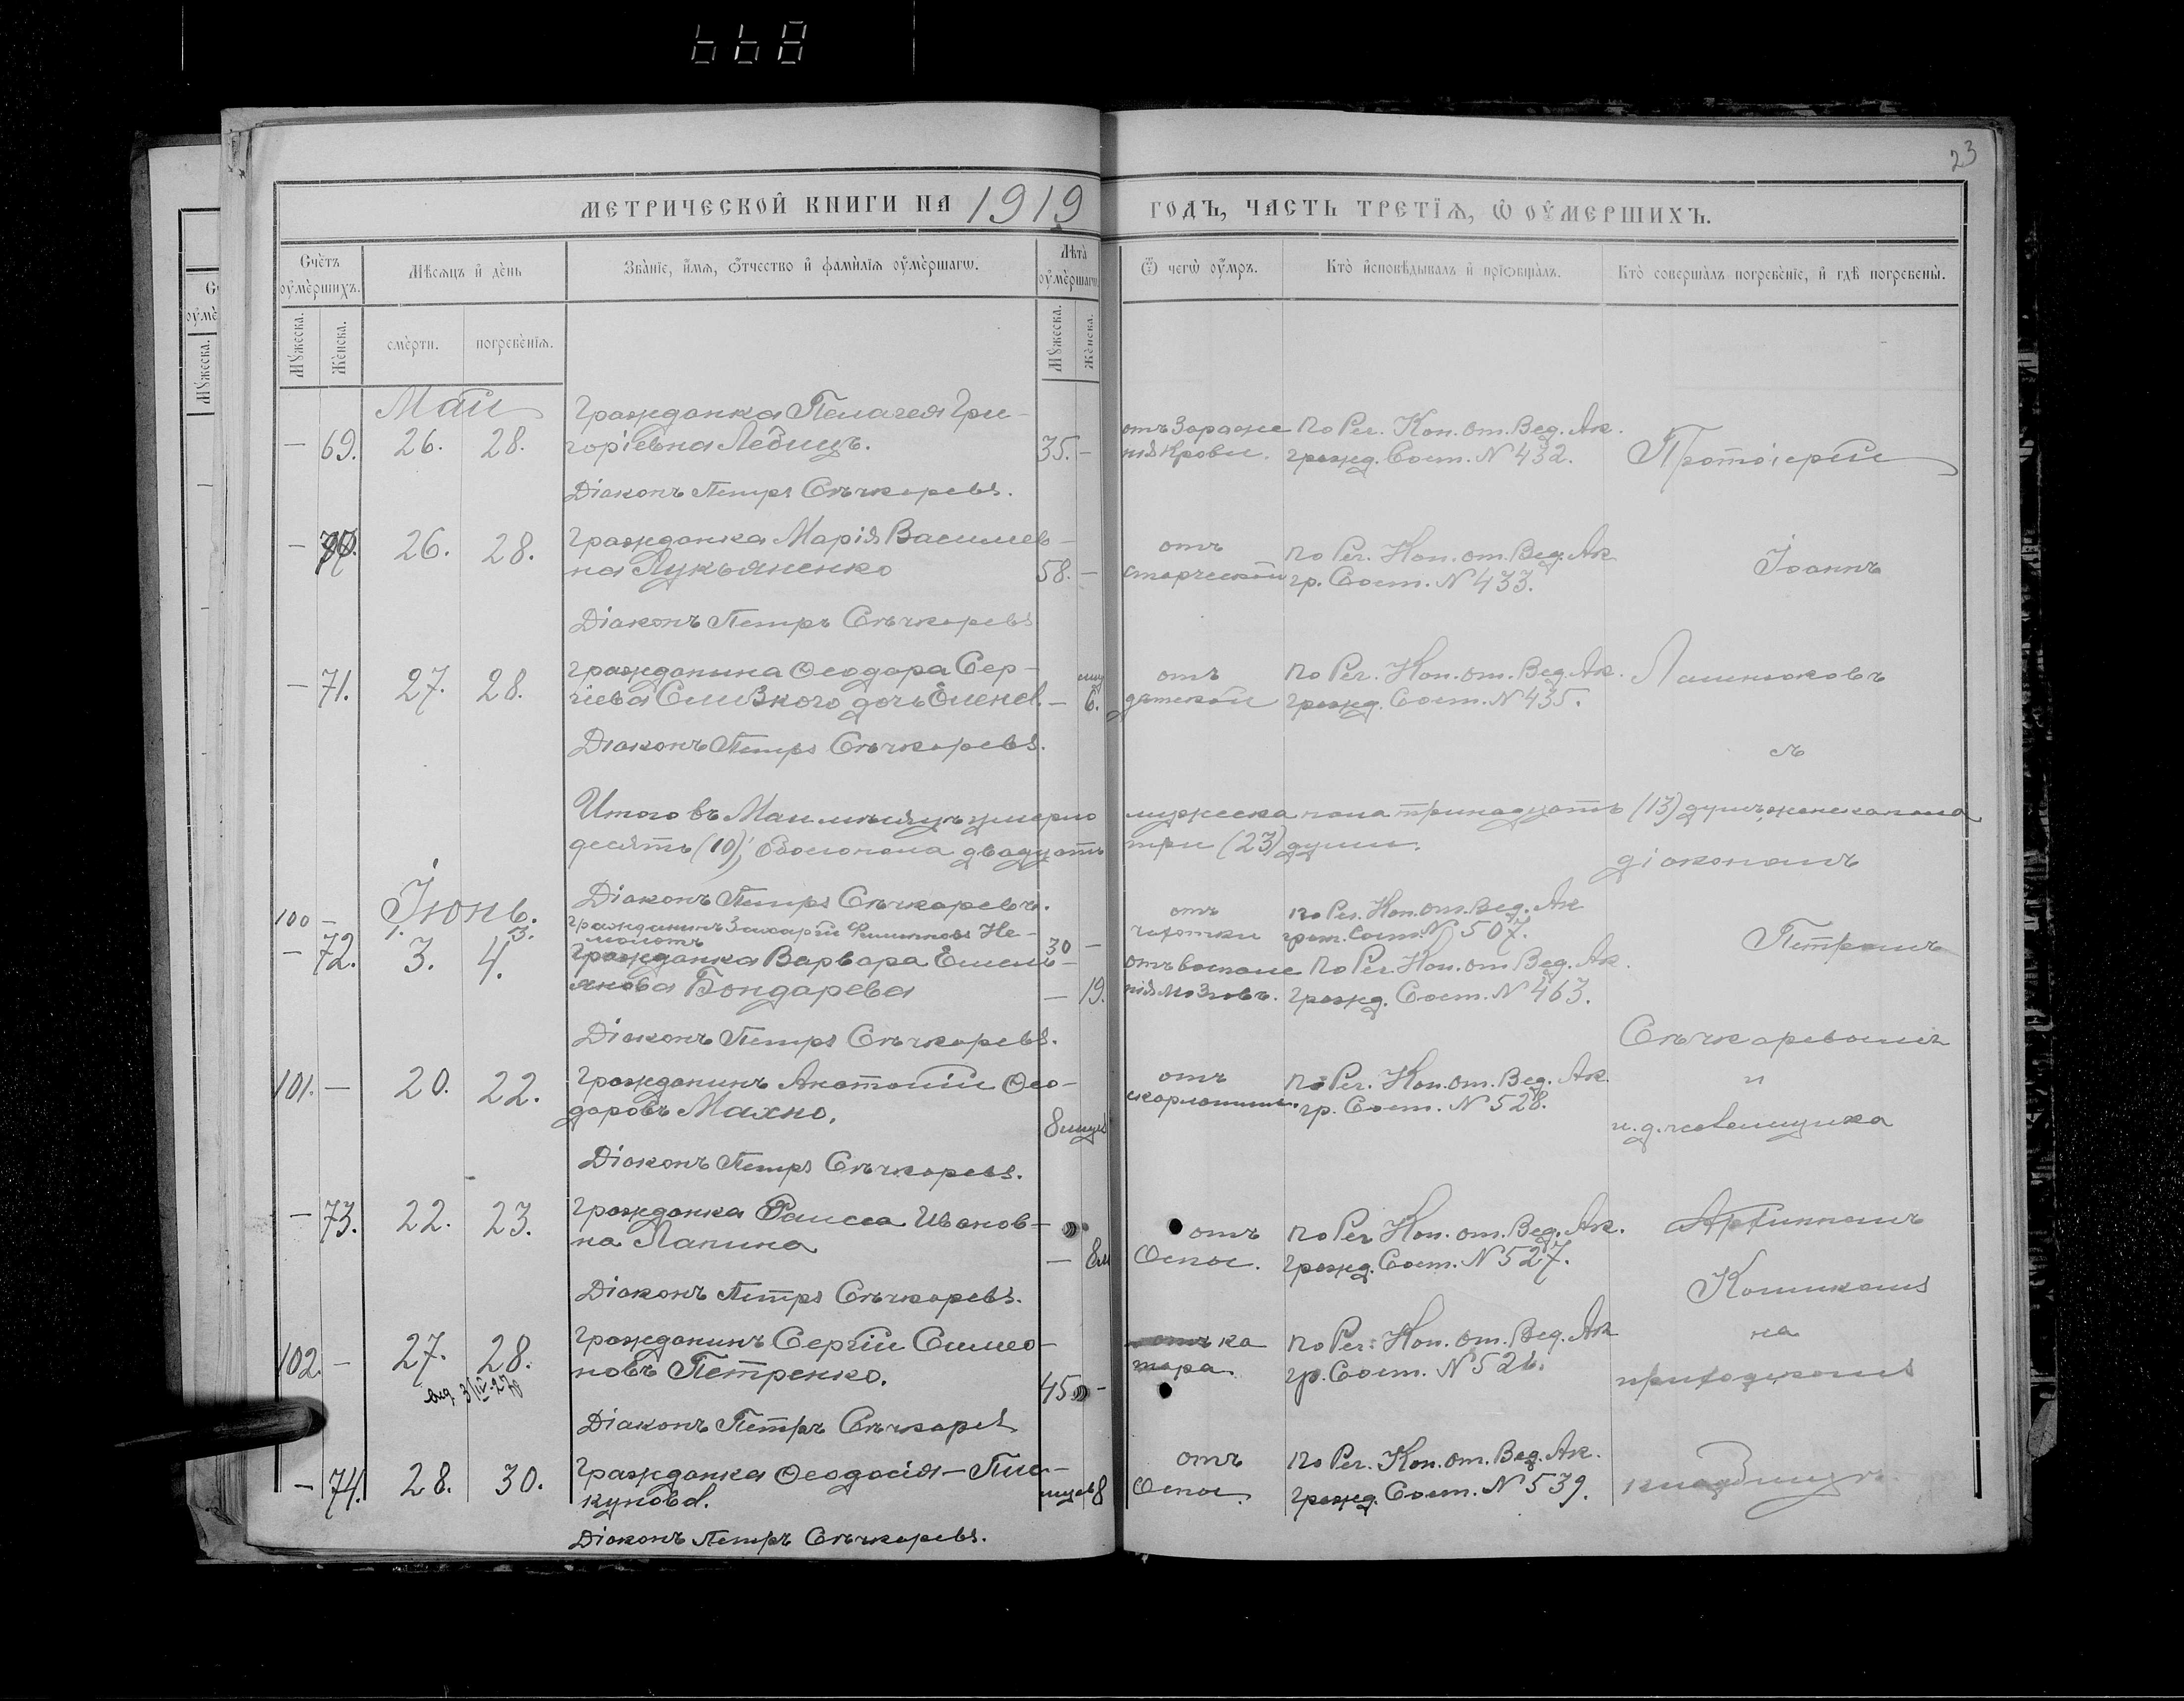 668
23
МЕТРИЧЕСКОЙ КНИГИ НА 1919 ГОДЪ, ЧАСТЬ ТРЕТІѦ, Ѡ ОУМЕРШИХЪ.
Счётъ оумершихъ.
Мѣсѧцъ и день
Званіе, имѧ, отчество и фамиліѧ оумершагѡ.
Лѣта оумершагѡ
Ѿ чегѡ оумръ.
Кто исповѣдывалъ и пріѡбщалъ.
Кто совершалъ погребеніе, и гдѣ погребены.
Мужеска.
Женска.
смерти.
погребеніѧ.
Мужеска.
Женска.
Май
Гражданка Пелагея Гри-
— 69. 26. 28. горіевна Лебидъ. 35. —
отъ зараже
нія крови.
по Рег. Кон. от. Вед. Ак.
гражд. Сост. № 432.
Протоіерей
Діаконъ Петръ Сѣчкаревъ.
— 70. 26. 28. Гражданка Марія Василіев-
на Лукьяненко 58. —
отъ
старческой
по Рег. Кон. от. Вед. Ак
гр. Сост. № 433.
Іоаннъ
Діаконъ Петръ Сѣчкаревъ
— 71. 27. 28. Гражданина Ѳеодора Сер-
гіева Слизкого дочь Елена. — 6.
отъ
дѣтской
по Рег. Кон. от. Вед. Ак.
гражд. Сост. № 435.
Діаконъ Петръ Сѣчкаревъ.
съ
Итого въ Маѣ мѣсяцѣ умерло мужеска пола тринадцать (13) душъ, женска пола
десять (10), обоего пола двадцать три (23) души.
діакономъ
Діаконъ Петръ Сѣчкаревъ.
Іюнь.
100 — 1. 3. Гражданинъ Захарій Филиповъ Не-
30 —
отъ
чахотки
по Рег. Кон. от. Вед. Ак
граж. Сост. № 507.
Петромъ
— 72. 3. 4. Гражданка Варвара Емель-
янова Бондарева — 19.
отъ воспале
нія мозговъ.
по Рег. Кон. от. Вед. Ак.
гражд. Сост. № 463.
Діаконъ Петръ Сѣчкаревъ.
Сѣчкаревымъ
101. — 20. 22. Гражданинъ Анатолій Ѳео-
доровъ Махно. 8 мцев
отъ
скарлатины.
по Рег. Кон. от. Вед. Ак.
гр. Сост. № 528.
и
и. д. псаломщика
Діаконъ Петръ Сѣчкаревъ.
— 73. 22. 23. Гражданка Раисса Иванов-
на Лапина — 8 м
отъ
Оспы.
по Рег. Кон. от. Вед. Ак.
гражд. Сост. № 527.
Діаконъ Петръ Сѣчкаревъ.
102. — 27. 28. Гражданинъ Сергій Симео-
новъ Петренко. 45 —
отъ ка
тара.
по Рег. Кон. от. Вед. Ак
гр. Сост. № 526.
на
приходскомъ
Діаконъ Петръ Сѣчкарев
— 74. 28. 30. Гражданка Ѳеодосія
мцев 8
отъ
Оспы.
по Рег. Кон. от. Вед. Ак.
гражд. Сост. № 539.
кладбищѣ.
Діаконъ Петръ Сѣчкаревъ.